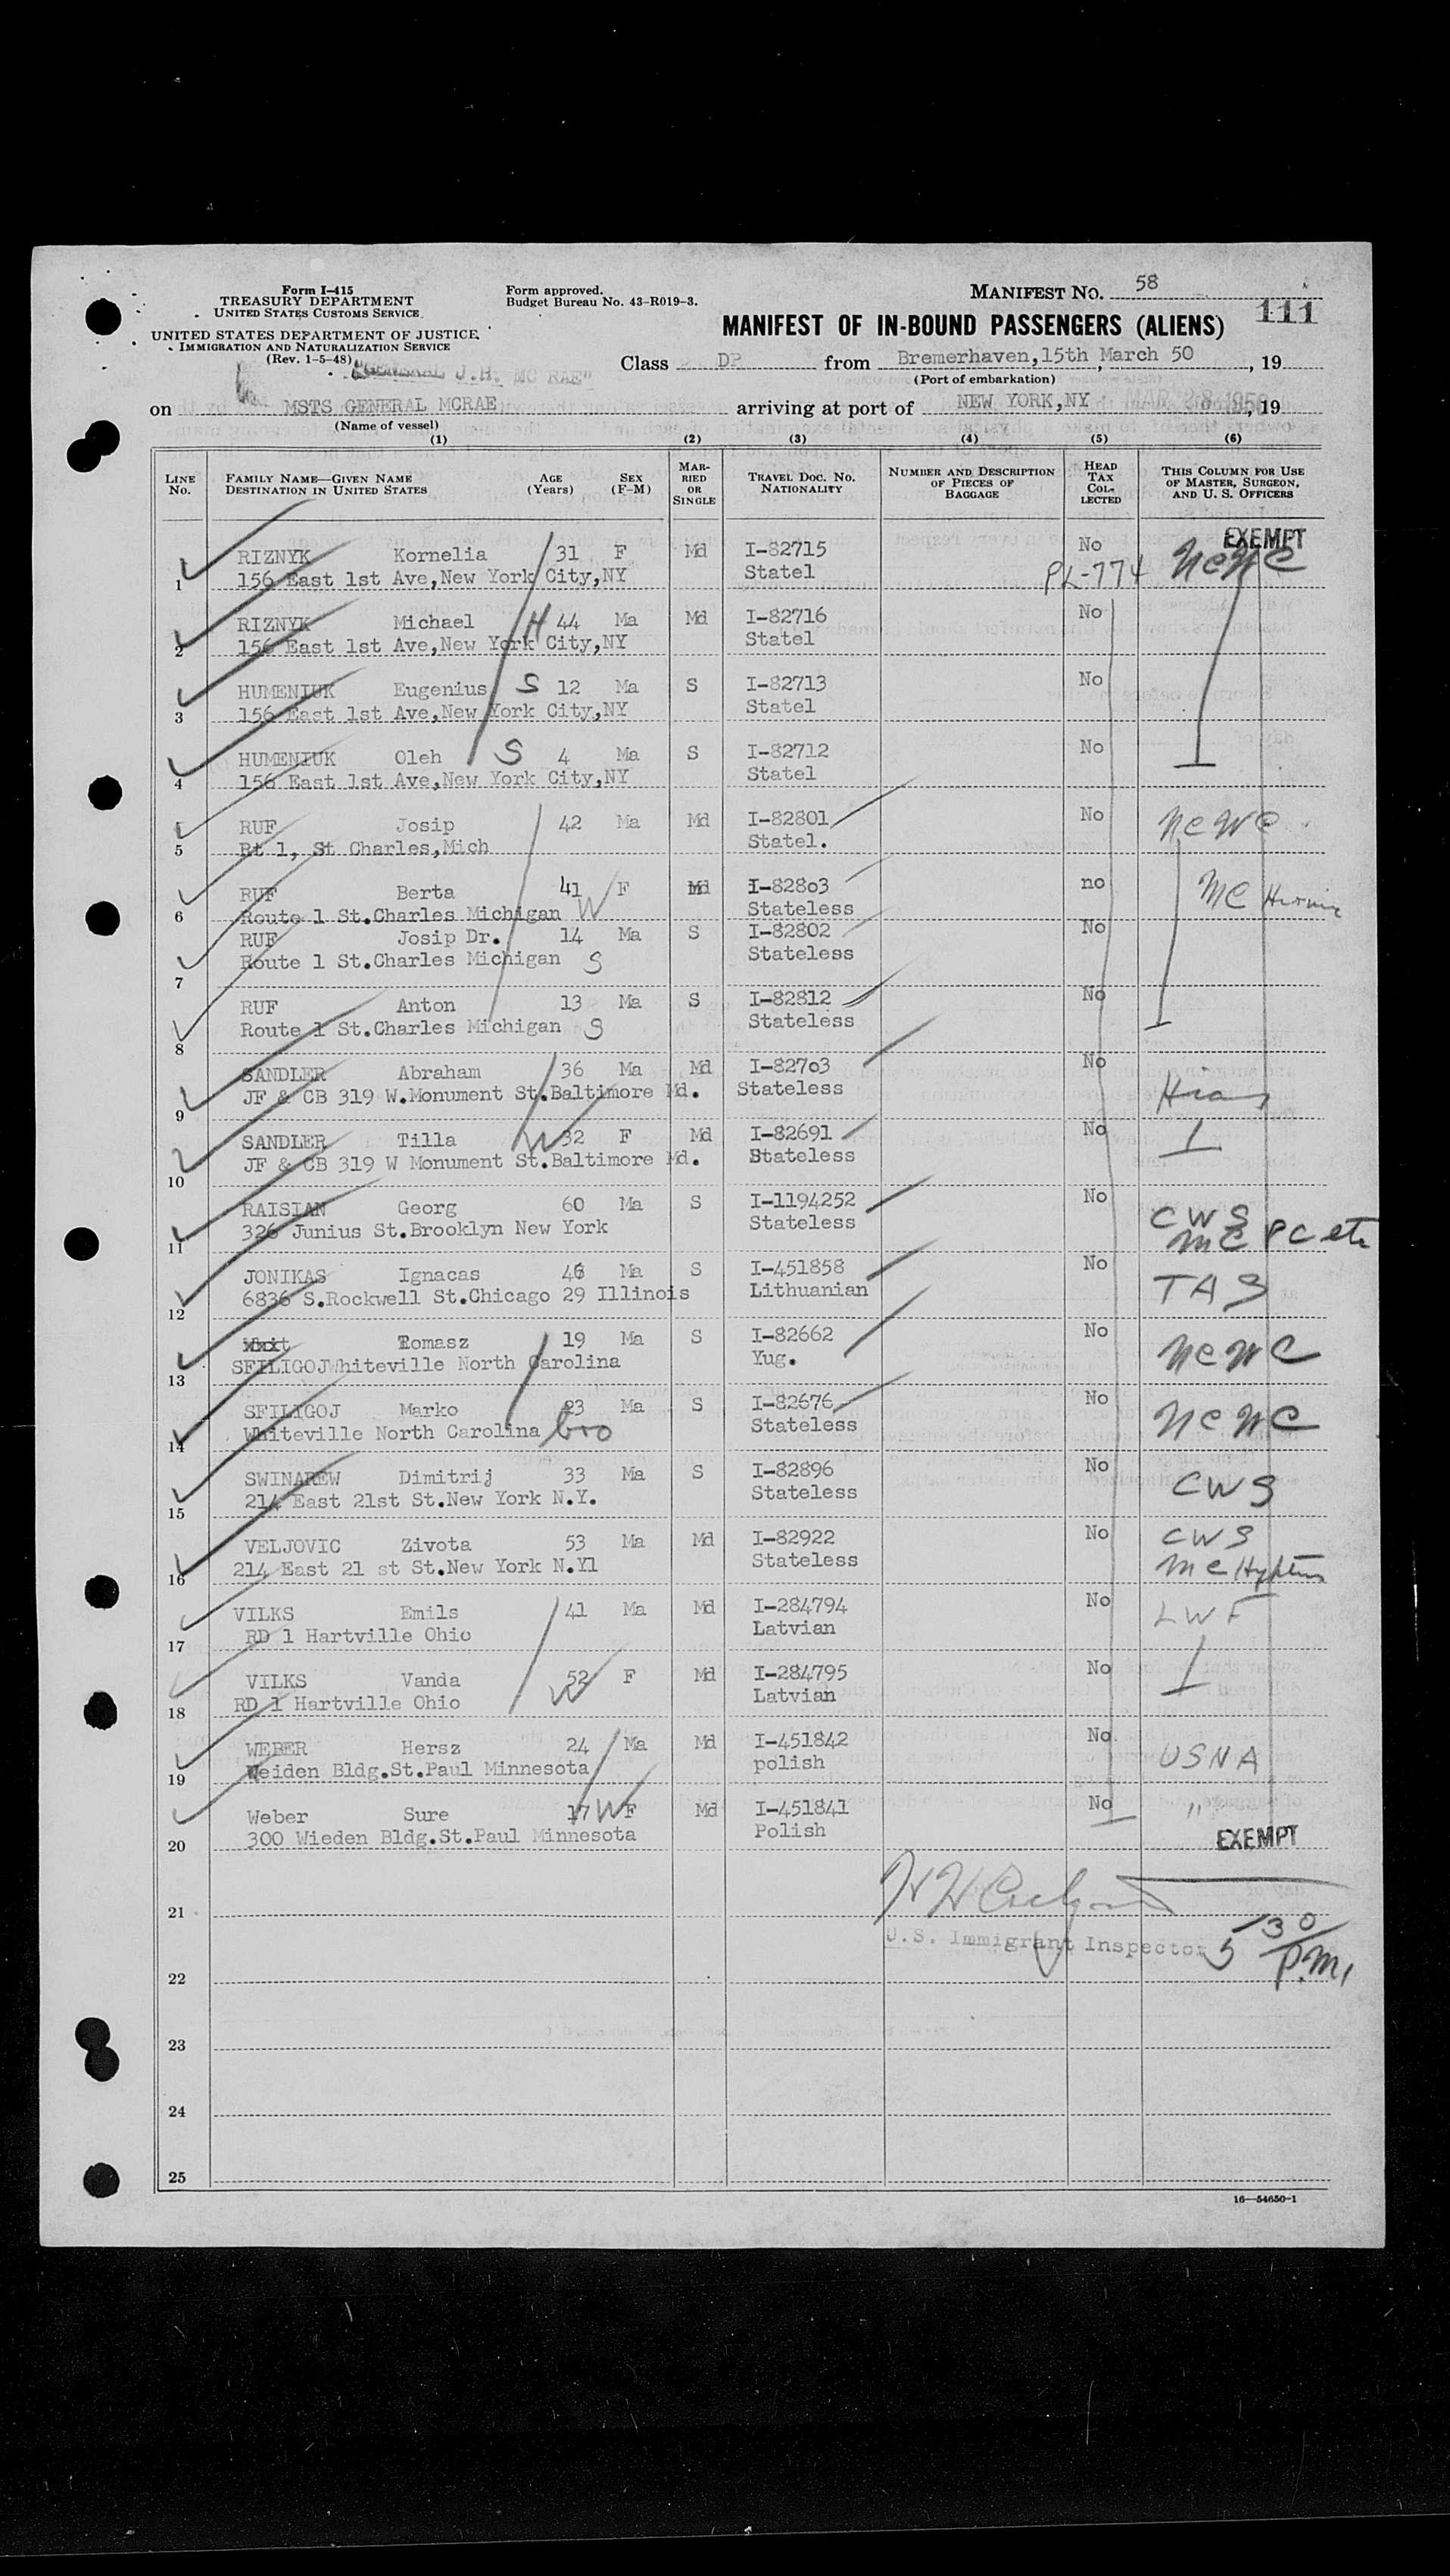 Form I-415
TREASURY DEPARTMENT
UNITED STATES CUSTOMS SERVICE
UNITED STATES DEPARTMENT OF JUSTICE
IMMIGRATION AND NATURALIZATION SERVICE
(Rev. 1-5-48)
Form approved.
Budget Bureau No. 43-R019-3.
MANIFEST No. 58
111
MANIFEST OF IN-BOUND PASSENGERS (ALIENS)
Class DP from Bremerhaven, 15th March 50, 19
(Port of embarkation)
"GENERAL J.H. MC RAE"
on MSTS GENERAL MCRAE arriving at port of NEW YORK,NY MAR 28 1950, 19
(Name of vessel)
(1) (2) (3) (4) (5) (6)
LINE No. FAMILY NAME—GIVEN NAME DESTINATION IN UNITED STATES AGE (Years) SEX (F-M) MARRIED OR SINGLE TRAVEL DOC. No. NATIONALITY NUMBER AND DESCRIPTION OF PIECES OF BAGGAGE HEAD TAX COLLECTED THIS COLUMN FOR USE OF MASTER, SURGEON, AND U. S. OFFICERS
EXEMPT
RIZNYK Kornelia 31 F Md I-82715 No NCWC
1 156 East 1st Ave,New York City,NY Statel PL-774
RIZNYK Michael H 44 Ma Md I-82716 No
2 156 East 1st Ave,New York City,NY Statel
HUMENIUK Eugenius S 12 Ma S I-82713 No
3 156 East 1st Ave,New York City,NY Statel
HUMENIUK Oleh S 4 Ma S I-82712 No
4 156 East 1st Ave,New York City,NY Statel
RUF Josip 42 Ma Md I-82801 No NCWC
5 Rt 1, St Charles,Mich Statel.
RUF Berta 41 F Md I-82803 no MC
6 Route 1 St.Charles Michigan W Stateless
RUF Josip Dr. 14 Ma S I-82802 No
7 Route 1 St.Charles Michigan S Stateless
RUF Anton 13 Ma S I-82812 No
8 Route 1 St.Charles Michigan S Stateless
SANDLER Abraham 36 Ma Md I-82703 No
9 JF & CB 319 W.Monument St.Baltimore Md. Stateless Hias
SANDLER Tilla W 32 F Md I-82691 No
10 JF & CB 319 W Monument St.Baltimore Md. Stateless
RAISIAN Georg 60 Ma S I-1194252 No CWS
11 326 Junius St.Brooklyn New York Stateless MC PC etc
JONIKAS Ignacas 46 Ma S I-451858 No
12 6836 S.Rockwell St.Chicago 29 Illinois Lithuanian TAS
Tomasz 19 Ma S I-82662 No
13 SFILIGOJ Whiteville North Carolina Yug. NCWC
SFILIGOJ Marko 23 Ma S I-82676 No
14 Whiteville North Carolina bro Stateless NCWC
SWINAREW Dimitrij 33 Ma S I-82896 No
15 214 East 21st St.New York N.Y. Stateless CWS
VELJOVIC Zivota 53 Ma Md I-82922 No CWS
16 214 East 21 st St.New York N.Yl Stateless MC
VILKS Emils 41 Ma Md I-284794 No LWF
17 RD 1 Hartville Ohio Latvian
VILKS Vanda 52 F Md I-284795 No
18 RD 1 Hartville Ohio W Latvian
WEBER Hersz 24 Ma Md I-451842 No.
19 Weiden Bldg.St.Paul Minnesota polish USNA
Weber Sure 17 W F Md I-451841 No "
20 300 Wieden Bldg.St.Paul Minnesota Polish EXEMPT
21
U.S. Immigrant Inspector 5 30/P.M.
22
23
24
25
16—54650-1